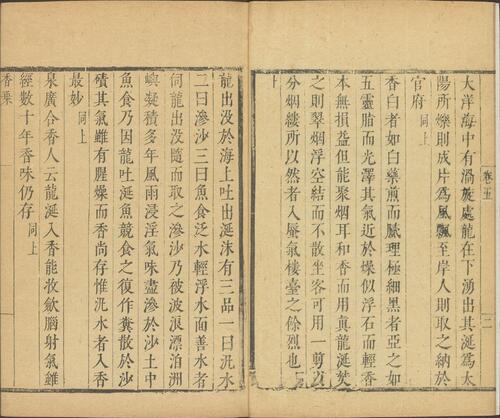 卷五
二
大洋海中有渦旋處龍在下湧出其涎爲太
陽所爍則成片爲風飄至岸人則取之納於
官府同上
香白者如白藥煎而膩理極細黑者亞之如
五靈脂而光澤其氣近於燥似浮石而輕香
本無損益但能聚烟耳和香而用眞龍涎焚
之則翠烟浮空結而不散坐客可用一剪以
分烟縷所以然者入蜃氣樓臺之餘烈也同
上
龍出没於海上吐出涎沫有三品一曰汎水
二曰滲沙三曰魚食泛水輕浮水面善水者
伺龍出没隨而取之滲沙乃被波浪漂泊洲
嶼凝積多年風雨浸淫氣味盡滲於沙土中
魚食乃因龍吐涎魚競食之復作糞散於沙
磧其氣雖有腥燥而香尚存惟汎水者入香
最妙同上
泉廣合香人云龍涎入香能收斂腦射氣雖
經數十年香味仍存同上
香藥